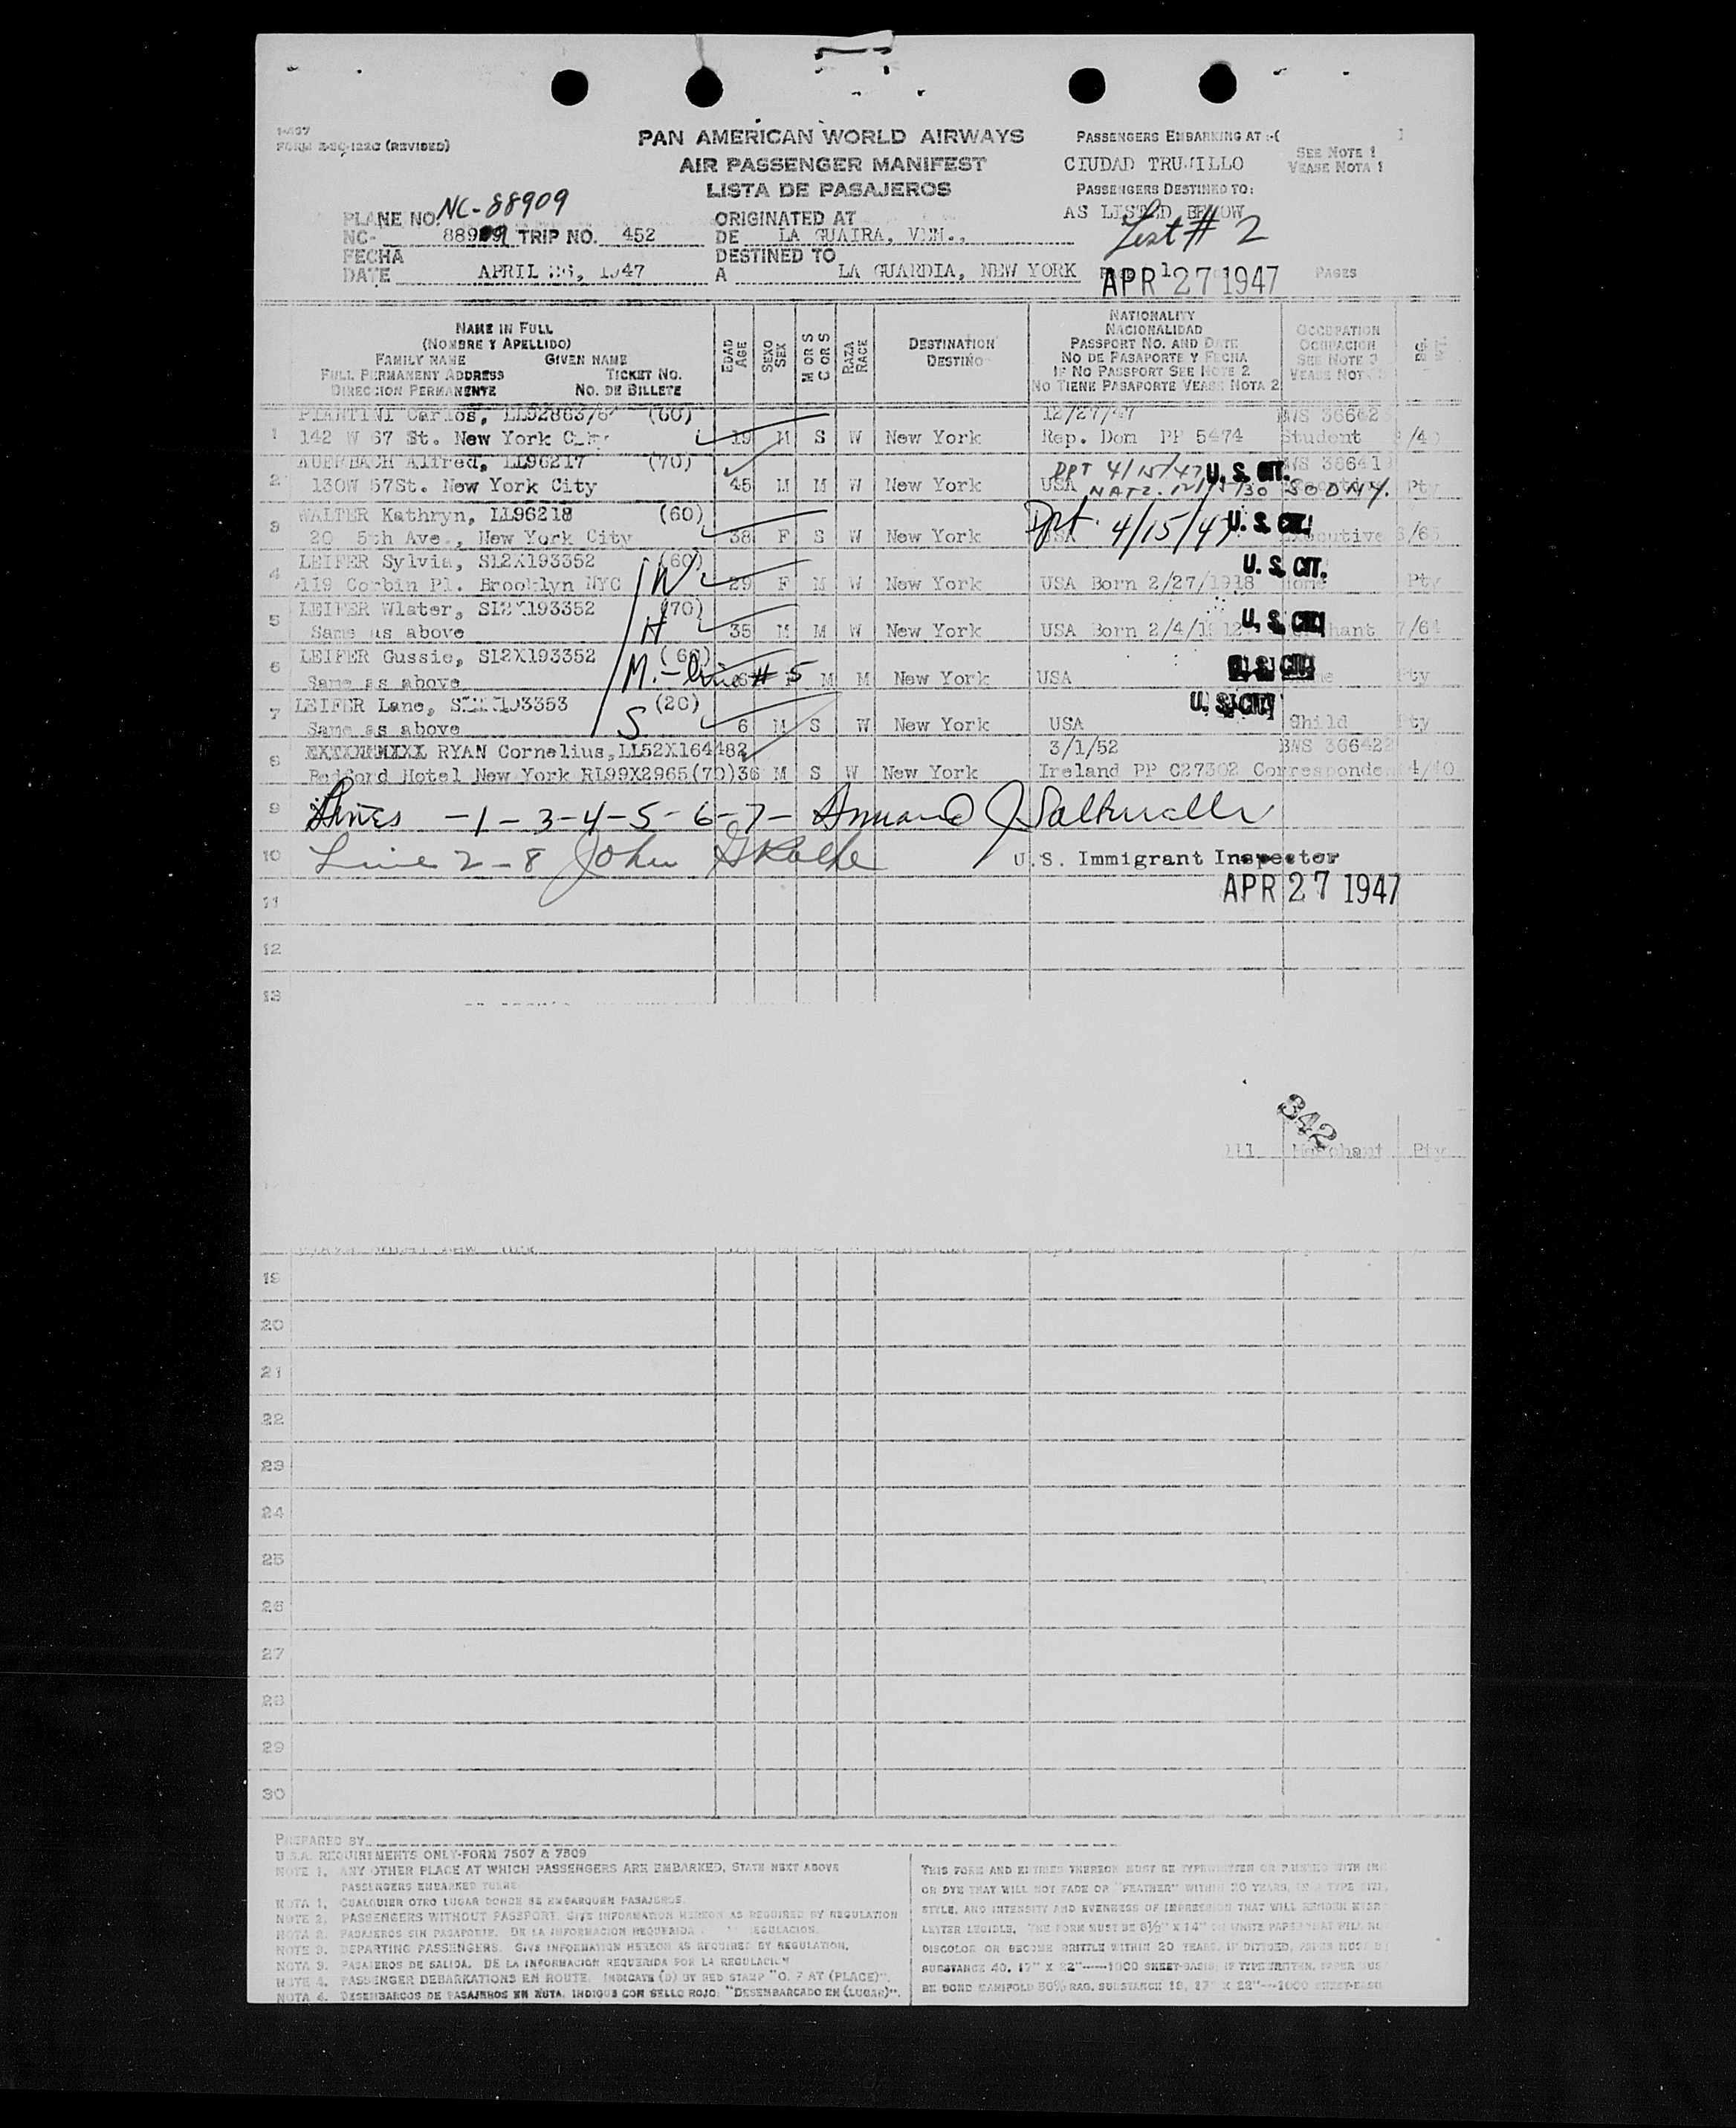 I-437
FORM (REVISED)
PAN AMERICAN WORLD AIRWAYS
AIR PASSENGER MANIFEST
LISTA DE PASAJEROS
PASSENGERS EMBARKING AT :-(
CIUDAD TRUJILLO
PASSENGERS DESTINED TO:
AS LISTED BELOW
SEE NOTE 1
VEASE NOTA 1
1
List # 2
PLANE NO. NC-88909
NC- 88909 TRIP NO. 452
FECHA
DATE APRIL 26, 1947
ORIGINATED AT
DE LA GUAIRA, VEN.,
DESTINED TO
A LA GUARDIA, NEW YORK
APR 27 1947
PAGES
NAME IN FULL
(NOMBRE Y APELLIDO)
FAMILY NAME GIVEN NAME
FULL PERMANENT ADDRESS TICKET NO.
DIRECCION PERMANENTE NO. DE BILLETE
EDAD AGE
SEXO SEX
M OR S C OR S
RAZA RACE
DESTINATION
DESTINO
NATIONALITY
NACIONALIDAD
PASSPORT NO. AND DATE
NO DE PASAPORTE Y FECHA
IF NO PASSPORT SEE NOTE 2
NO TIENE PASAPORTE VEASE NOTA 2
OCCUPATION
OCUPACION
SEE NOTE 3
VEASE NOTA
PIANTINI Carlos, (60) 12/27/47
1 142 W 67 St. New York City 19 M S W New York Rep. Dom PP 5474 Student
AUERBACH Alfred, LL96217 (70) DPT 4/15/47 U. S. CIT.
2 130W 57St. New York City 45 M M W New York USA NATZ. SO DNY. Pty
WALTER Kathryn, LL96218 (60) Dpt. 4/15/47 U. S. CIT.
3 20 5th Ave., New York City 38 F S W New York USA Executive
LEIFER Sylvia, S12X193352 (60) W U. S. CIT.
4 119 Corbin Pl. Brooklyn NYC 29 F M W New York USA Born 2/27/1918 Home Pty
LEIFER Wlater, S12X193352 (70) H U. S. CIT.
5 Same as above 35 M M W New York USA Born 2/4/1912 Merchant 7/64
LEIFER Gussie, S12X193352 (60) M. - line # 5 U. S. CIT.
6 Same as above M M New York USA Pty
LEIFER Lane, (20) S U. S. CIT.
7 Same as above 6 M S W New York USA Child Pty
RYAN Cornelius, LL52X164482 3/1/52 BNS 366422
8 Bedford Hotel New York RL99X2965(70) 36 M S W New York Ireland PP C27302 Correspondent 4/40
9 Lines -1-3-4-5-6-7-
10 Line 2-8 John
U.S. Immigrant Inspector
APR 27 1947
11
12
13
342
Merchant Pty
19
20
21
22
23
24
25
26
27
28
29
30
PREPARED BY
U.S.A. REQUIREMENTS ONLY-FORM 7507 & 7509
NOTE 1. ANY OTHER PLACE AT WHICH PASSENGERS ARE EMBARKED, STATE NEXT ABOVE
PASSENGERS EMBARKED THERE
NOTA 1. CUALQUIER OTRO LUGAR DONDE SE EMBARQUEN PASAJEROS.
NOTE 2. PASSENGERS WITHOUT PASSPORT. GIVE INFORMATION HEREON AS REQUIRED BY REGULATION
NOTA 2. PASAJEROS SIN PASAPORTE. DE LA INFORMACION REQUERIDA REGULACION.
NOTE 3. DEPARTING PASSENGERS. GIVE INFORMATION HEREON AS REQUIRED BY REGULATION,
NOTA 3. PASAJEROS DE SALIDA. DE LA INFORMACION REQUERIDA POR LA REGULACION
NOTE 4. PASSENGER DEBARKATIONS EN ROUTE. INDICATE (D) BY RED STAMP "O. F AT (PLACE)".
NOTA 4. DESEMBARCOS DE PASAJEROS EN RUTA. INDIQUE CON SELLO ROJO: "DESEMBARCADO EN (LUGAR)".
THIS FORM AND ENTRIES THEREON MUST BE TYPEWRITTEN OR PRINTED WITH INK
OR DYE THAT WILL NOT FADE OR "FEATHER" WITHIN 20 YEARS, IN A TYPE SIZE,
STYLE, AND INTENSITY AND EVENNESS OF IMPRESSION THAT WILL RENDER EVERY
LETTER LEGIBLE. THE FORM MUST BE 8½" X 14" ON WHITE PAPER THAT WILL NOT
DISCOLOR OR BECOME BRITTLE WITHIN 20 YEARS. IF DITTOED, PAPER MUST BE
SUBSTANCE 40, 17" X 22"-----1000 SHEET-BASIS; IF TYPEWRITTEN, PAPER MUST
BE BOND MANIFOLD 50% RAG, SUBSTANCE 18, 17" X 22"---1000 SHEET-BASIS